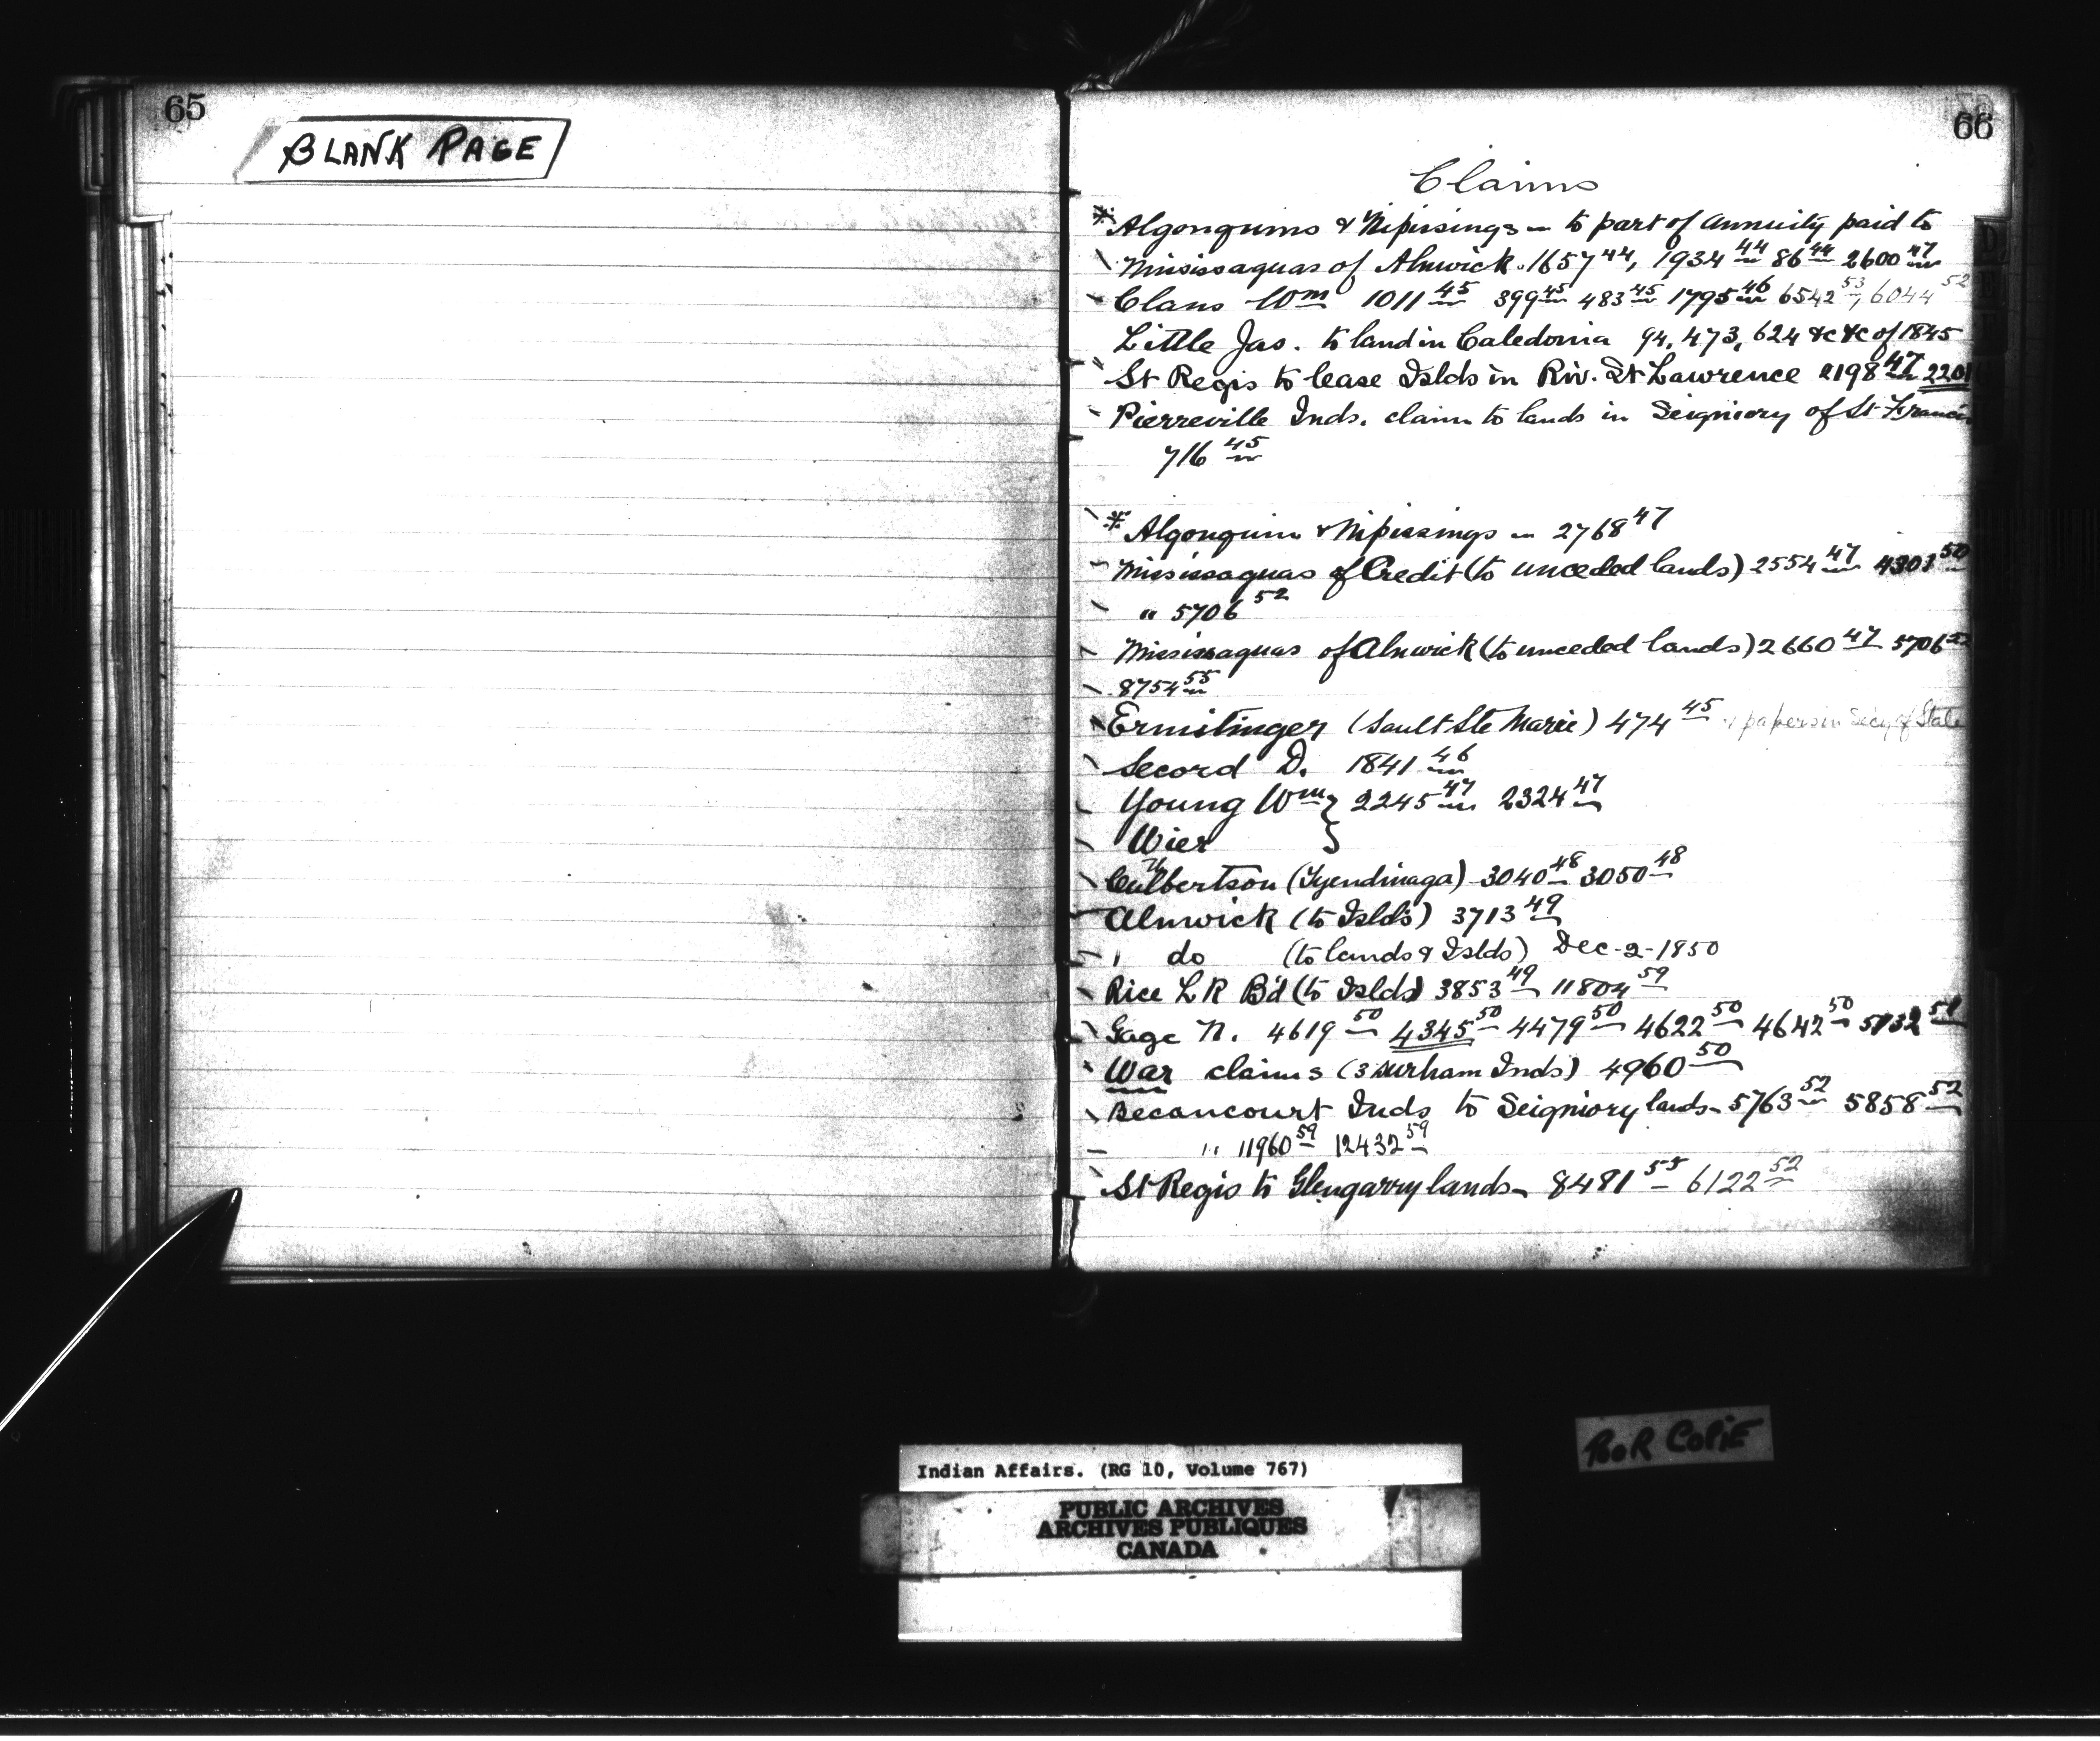 65
BLANK PAGE
66
Claims
* Algonquins & Nipissings - to part of annuity paid to
Mississaguas of Alnwick. 1657 44, 1934 44 86 44 2600 47
Claus Wm 1011 45 399 45 483 45 1795 46 6542 53, 6044 52
Little Jas. to land in Caledonia 94, 473, 624 &c &c of 1845
St Regis to lease Islds in Riv. St Lawrence 2198 47 2201
Pierreville Inds. claim to lands in Seigniory of St Francis
716 45
* Algonquin & Nipissings - 2768 47
Mississaguas of Credit (to unceded lands) 2554 47 4301 50
" 5706 52
Mississaguas of Alnwick (to unceded lands) 2660 47 5706 52
8754 55
Ermitinger (Sault Ste Marie) 474 45 & papers in Secy of State
Secord D. 1841 46
Young Wm } 2245 47 2324 47
Wier
Culbertson (Tyendinaga) 3040 48 3050 48
Alnwick (to Islds) 3713 49
" do (to lands & Islds) Dec-2-1850
Rice L R Bd (to Islds) 3853 49 11804 59
Gage N. 4619 50 4345 50 4479 50 4622 50 4642 50 5132 51
War claims (3 Durham Inds) 4960 50
Becancourt Inds to Seigniory lands - 5763 52 5858 52
" 11960 59 12432 59
St Regis to Glengarry lands - 8481 55 6122 52
POOR COPIE
Indian Affairs. (RG 10, Volume 767)
PUBLIC ARCHIVES
ARCHIVES PUBLIQUES
CANADA